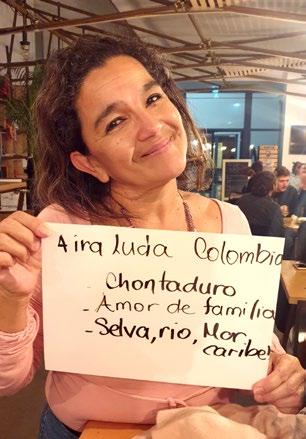 Aira luda Colombia
- Chontaduro
- Amor de familia
- Selva, rio, Mar
caribe